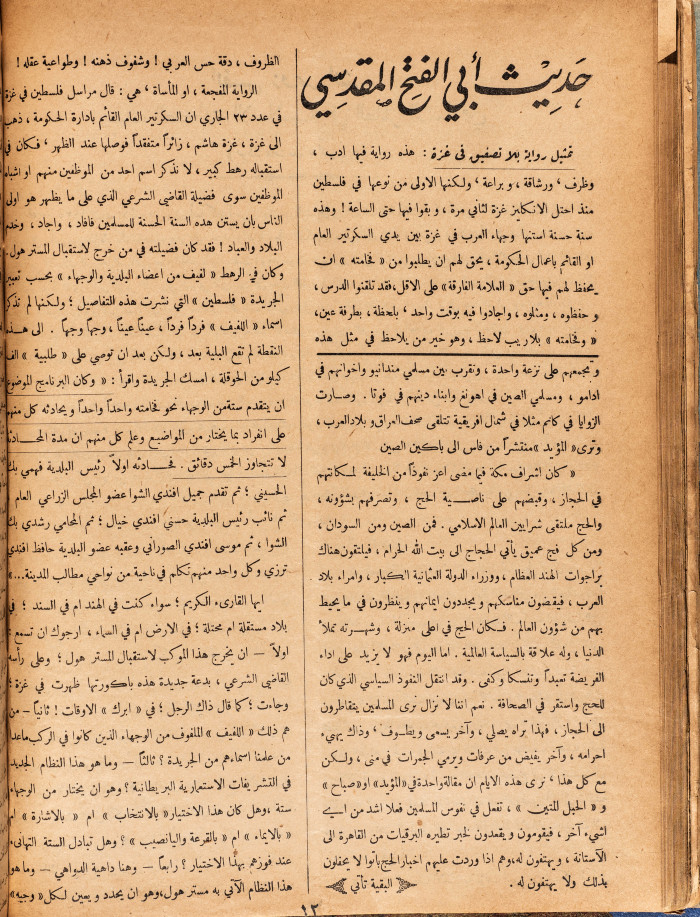 حديث أبي الفتح المقدسي
تمثيل رواية بلا تصفيق في غزة : هذه رواية فيها ادب ،
وظرف ، ورشاقة ، وبراعة ، ولكنها الاولى من نوعها في فلسطين
منذ احتل الانكليز غزة لثاني مرة ، وبقوا فيها حتى الساعة ! وهذه
سنة حسنة استنها وجهاء العرب في غزة بين يدي السكرتير العام
او القائم باعمال الحكومة ، يحق لهم ان يطلبوا من « فخامته » ان
يحفظ لهم فيها حق « العلامة الفارقة » على الاقل، فقد تلقنوا الدرس ،
وحفظوه ، ومثلوه ، واجادوا فيه بوقت واحد ، بلحظة ، بطرفة عين،
« وفخامته » بلا ريب لاحظ ، وهو خير من يلاحظ في مثل هذه
و يجمعهم على نزعة واحدة ، ونقرب بين مسلمي مندانيو واخوانهم في
ادامو ، ومسلمي الصين في اهونغ وابناء دينهم في فوتا . وصارت
الزوايا في كانم مثلا في شمال افريقية تتلقى صحف العراق وبلاد العرب ،
وترى « المؤيد » منتشراً من فاس الى باكين الصين
« كان اشراف مكة فيما مضى اعز نفوذاً من الخليفة لمكانتهم
في الحجاز ، وقبضهم على ناصية الحج ، وتصرفهم بشؤونه ،
والحج ملتقى شرايين العالم الاسلامي . فمن الصين ومن السودان ،
ومن كل فج عميق يأتي الحجاج الى بيت الله الحرام ، فيلتقون هناك
براجوات الهند العظام ، ووزراء الدولة العثمانية الكبار ، وامراء بلاد
العرب ، فيقضون مناسكهم ويجددون ايمانهم وينظرون في ما يحيط
بهم من شؤون العالم . فكان الحج في اعلى منزلة ، وشهرته تملأ
الدنيا ، وله علاقة بالسياسة العالمية . اما اليوم فهو لا يزيد على اداء
الفريضة تعبداً وتنسكا وكفى . وقد انتقل النفوذ السياسي الذي كان
للحج واستقر في الصحافة . نعم اننا لا نزال نرى المسلمين يتقاطرون
الى الحجاز ، فهذا تراه يصلي ، وآخر يسعى ويطوف ، وذاك يهيء
احرامه ، وآخر يفيض من عرفات ويرمي الجمرات في منى ، ولكن
مع كل هذا ، نرى هذه الايام ان مقالة واحدة في « المؤيد » او « صباح »
و « الحبل المتين » ، تفعل في نفوس المسلمين فعلا اشد من اي
شيء آخر ، فيقومون ويقعدون لخبر تطيره البرقيات من القاهرة الى
الآستانة ، ويهتفون له، وهم اذا وردت عليهم اخبار الحج باتوا لا يحفلون
بذلك ولا يهتفون له . البقية تأتي
الظروف ، دقة حس العربي ! وشفوف ذهنه ! وطواعية عقله !
الرواية المفجعة ، او المأساة ، هي : قال مراسل فلسطين في غزة
في عدد ٢٣ الجاري ان السكرتير العام القائم بادارة الحكومة ، ذهب
الى غزة ، غزة هاشم ، زائراً متفقداً فوصلها عند الظهر ، فكان في
استقباله رهط كبير ، لا نذكر اسم احد من الموظفين منهم او اشباه
الموظفين سوى فضيلة القاضي الشرعي الذي على ما يظهر هو اولى
الناس بان يستن هذه السنة الحسنة للمسلمين فافاد ، واجاد ، وخدم
البلاد والعباد ! فقد كان فضيلته في من خرج لاستقبال المستر هول.
وكان في الرهط « لفيف من اعضاء البلدية والوجهاء » بحسب تعبير
الجريدة « فلسطين » التي نشرت هذه التفاصيل ؛ ولكنها لم تذكر
اسماء « اللفيف » فرداً فرداً ، عيناً عيناً ، وجهاً وجهاً . الى هذه
النقطة لم تقع البلية بعد ، ولكن بعد ان توصي على « طلبية » الف
كيلو من الحوقلة ، امسك الجريدة واقرأ : « وكان البرنامج الموضوع
ان يتقدم ستة من الوجهاء نحو فخامته واحداً واحداً ويحادثه كل منهم
على انفراد بما يختار من المواضيع وعلم كل منهم ان مدة المحادثة
لا تتجاوز الخمس دقائق . فحادثه اولاً رئيس البلدية فهمي بك
الحسيني ؛ ثم تقدم جميل افندي الشوا عضو المجلس الزراعي العام ؛
ثم نائب رئيس البلدية حسني افندي خيال ؛ ثم المحامي رشدي بك
الشوا ، ثم موسى افندي الصوراني وعقبه عضو البلدية حافظ افندي
ترزي وكل واحد منهم تكلم في ناحية من نواحي مطالب المدينة...»
ايها القارىء الكريم ؛ سواء كنت في الهند ام في السند ؛ في
بلاد مستقلة ام محتلة ؛ في الارض ام في السماء ، ارجوك ان تسمع :
اولاً — ان يخرج هذا الموكب لاستقبال المستر هول ؛ وعلى رأسه
القاضي الشرعي ، بدعة جديدة هذه باكورتها ظهرت في غزة ؛
وجاءت ؛ كما قال ذاك الرجل ؛ في « ابرك » الاوقات ! ثانياً — من
هم ذلك « اللفيف » الملفوف من الوجهاء الذين كانوا في الركب ماعدا
من علمنا اسماءهم من الجريدة ؟ ثالثاً — وما هو هذا النظام الجديد
في التشريفات الاستعمارية البريطانية ؟ وهو ان يختار من الوجهاء
ستة ، وهل كان هذا الاختيار « بالانتخاب » ام « بالاشارة » ام
« بالايماء » ام « بالقرعة واليانصيب » ؟ وهل تبادل الستة التهانىء
عند فوزهم بهذا الاختيار ؟ رابعاً — وهنا داهية الدواهي — وما هو
هذا النظام الآتي به مستر هول، وهو ان يحدد ويعين لكل « وجيه »
١٣